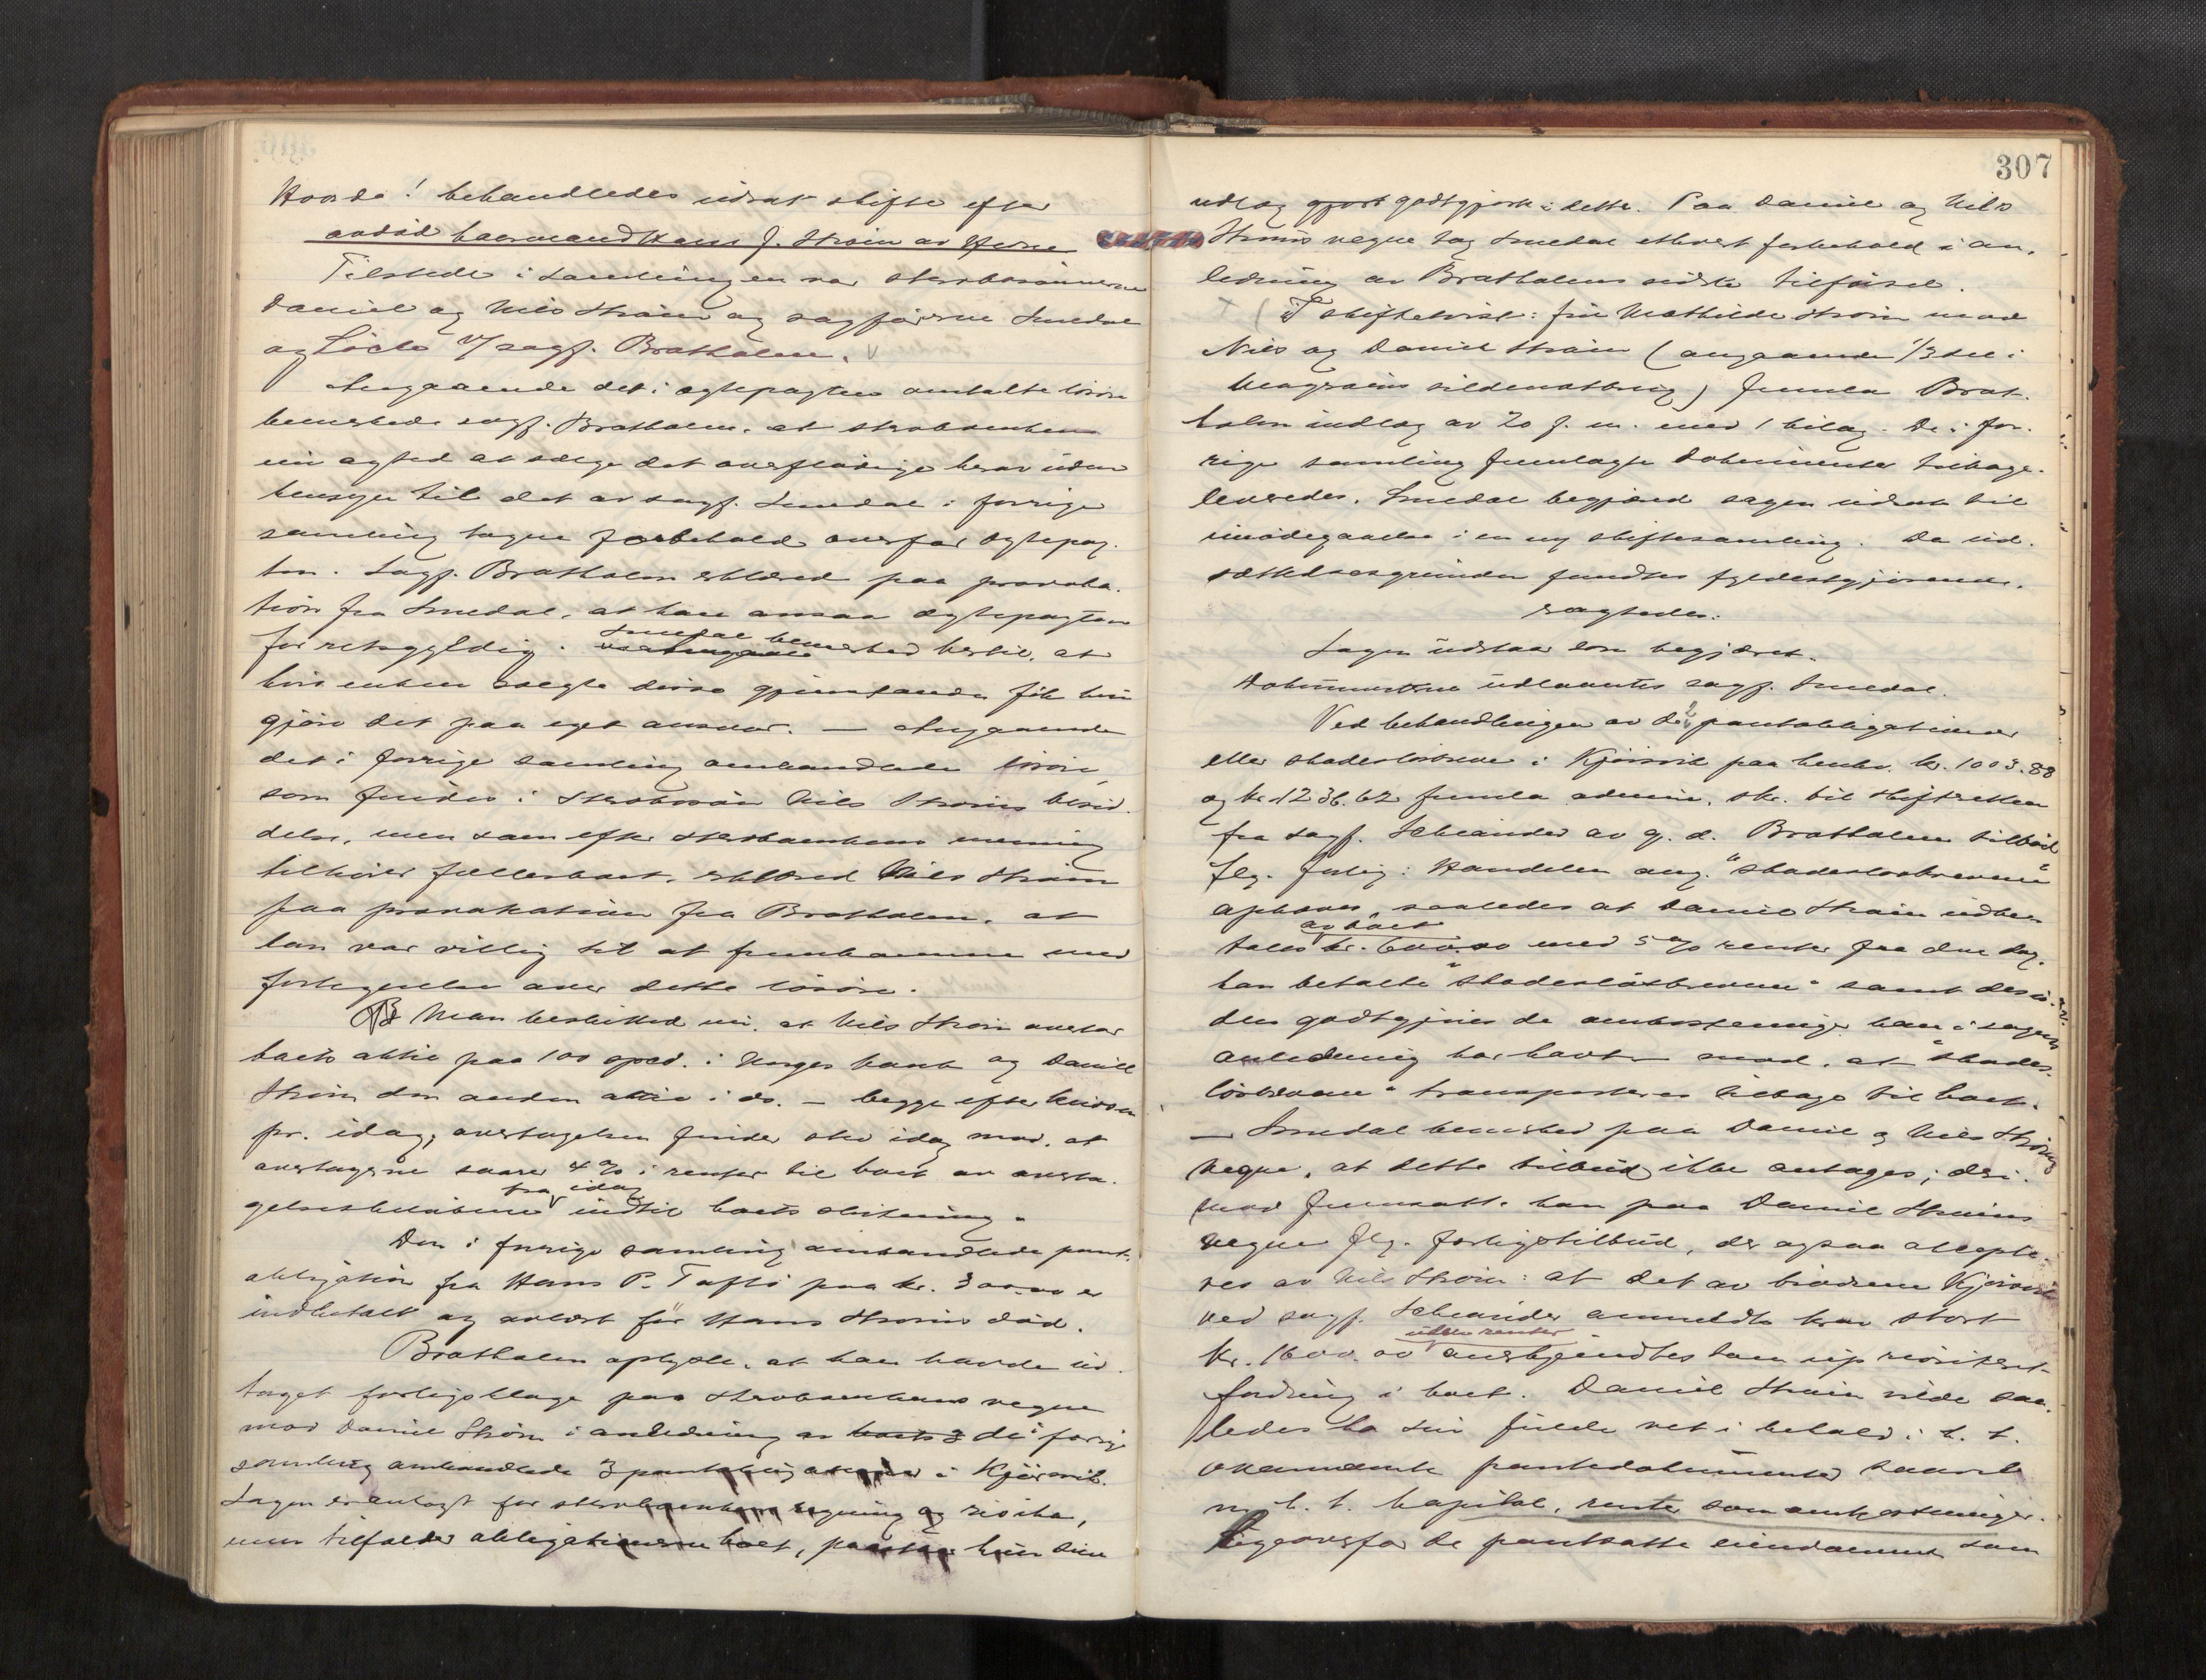 Hvorda! behandledes utsat skifte efter
avdød haermand Hans J. Strøm av Herøe
Tilstede i samlingen var sterbosønnerne
Daniel og Nils Strøm og sagførerne Smedal
og Løchs v/ sagf. Bratholm.
Angaaende det i egtepagten omtalte løsøre
bemerkede sagf. Bratholm, at sterboenken
nu agted at sælge det overflødige herav uden
hensyn til det av sagf. Smedal i forrige
samling tagne forbehold overfor egtepag-
ten. Sagf. Bratholm erklæred paa provoka-
tion fra Smedal, at han ansaa egtepagten
for retsgyldig. Smedal bemerked hertil, at
hvis enken solgte disse gjenstande fik hun
gjøre det paa eget ansvar. — Angaaende
det i forrige samling omhandlede løsøre,
som findes i sterbosøn Nils Strøms besid-
delse, men som efter sterboenkens mening
tilhører fællesboet, erklæred Nils Strøm
paa provokation fra Bratholm, at
han var villig til at fremkomme med
fortegnelse over dette løsøre.
Man beslutted nu, at Nils Strøm overtar
boets aktie paa 100 spcd. i Norges bank og Daniel
Strøm den anden aktie i do. — begge efter kursen
pr. idag; overtagelsen finder sted idag mod, at
overtagerne svarer 4 % i renter til boet av overta-
gelsesbeløbene fra idag indtil boets slutning.
Den i forrige samling omhandlede pant-
obligation fra Hans P. Tafto paa kr. 300.00 er
indbetalt og avlæst før Hans Strøms død.
Bratholm oplyste, at han havde ud-
taget forligsklage paa sterboenkens vegne
mod Daniel Strøm i anledning av boets 3 de i forrige
samling omhandlede 3 pantobligationer i Kjørsvik.
Sagen er anlagt for sterboenkens regning og risiko,
men tilfalder obligationerne boet, paastaar hun sine
307
utlæg gjort godtgjort i dette. Paa Daniel og Nils
Strøms vegne tog Smedal ethvert forbehold i an-
ledning av Bratholms sidste tilførsel.
I skiftetvist: fru Mathilde Strøm mod
Nils og Daniel Strøm (angaaende 1/3 del i
sildenotbrug) fremla Brat-
holm indlæg av 20 f. m. med 1 bilag. De i for-
rige samling fremlagte dokumenter tilbage-
leveredes. Smedal begjæred sagen udsat til
imødegaaelse i en ny skiftesamling. Da ud-
sættelsesgrunden fandtes fyldestgjørende,
vagtedes:
Sagen udstaar som begjæret.
Dokumenterne udlaantes sagf. Smedal.
Ved behandlingen av de 2 pantobligationer
eller skadesløsbreve i Kjørsvik paa henhv. kr. 1003.88
og kr. 1236.62 fremla admin. skr. til skifteretten
fra sagf. Scheander av g. d. Bratholm tilbød
flg. forlig: Handelen ang. "skadesløsbrevene"
ophæves, saaledes at Daniel Strøm indbe-
tales av boet kr. 600.00 med 5 % renter fra den dag,
han betalte "skadesløsbrevene" samt desu-
den godtgjøres de omkostninger han i sagens
anledning har havt mod, at "skades-
løsbrevene" transporteres tilbage til boet.
— Smedal bemerked paa Daniel og Nils Strøms
vegne, at dette tilbud ikke antages; deri-
mod fremsatte han paa Daniel Strøms
vegne flg. forligstilbud, der ogsaa accepte-
res av Nils Strøm: at det av brødrene Kjørsvik
ved sagf. Scheander anmeldte krav stort
kr. 1600.00 uten renter anerkjendtes som uprioritert
fordring i boet. Daniel Strøm vilde saa-
ledes ha sin fulde ret i behold i h. t.
ovennævnte pantedokumenter saavel
m. h. t. kapital, renter som omkostninger.
Ligeoverfor de pantsatte eiendomme som